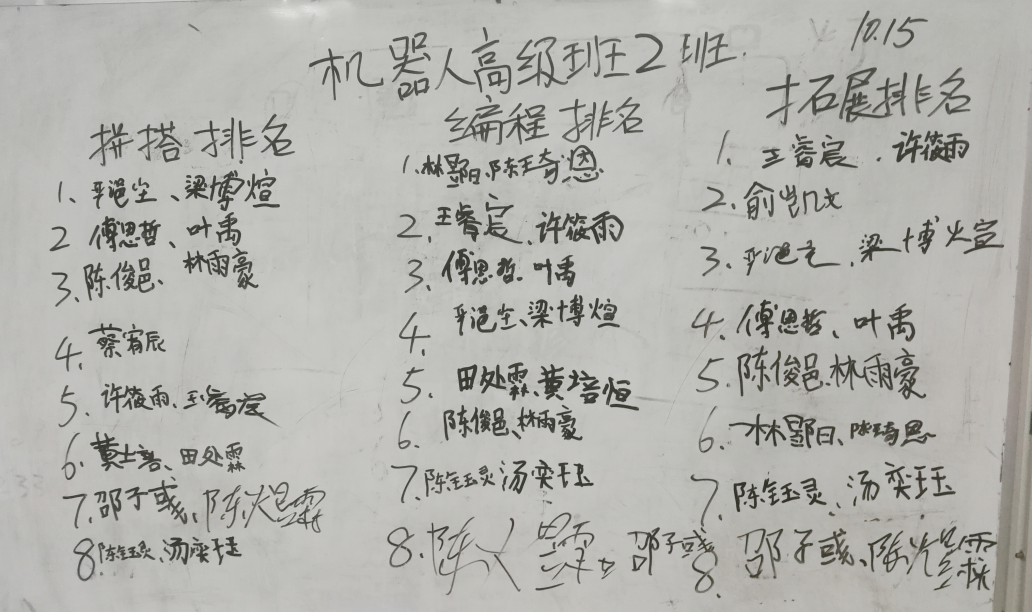 机器人高级班2班 10.15
拼搭排名
1、平浥尘、梁博煊
2 傅思哲、叶禹
3、陈俊邑、林雨豪
4、蔡宥辰
5、许筱雨、王睿宸
6、黄培、田处霖
7、邵子彧、陈焜霖
8、陈钰灵、汤奕珏
编程排名
1、林、陈奇恩
2、王睿宸、许筱雨
3、傅思哲、叶禹
4、平浥尘、梁博煊
5、田处霖、黄培恒
6、陈俊邑、林雨豪
7、陈钰灵、汤奕珏
8、陈 邵子彧
拓展排名
1、王睿宸、许筱雨
2、俞凯文
3、平浥尘、梁博煊
4、傅思哲、叶禹
5、陈俊邑、林雨豪
6、林、陈琦恩
7、陈钰灵、汤奕珏
8、邵子彧、陈